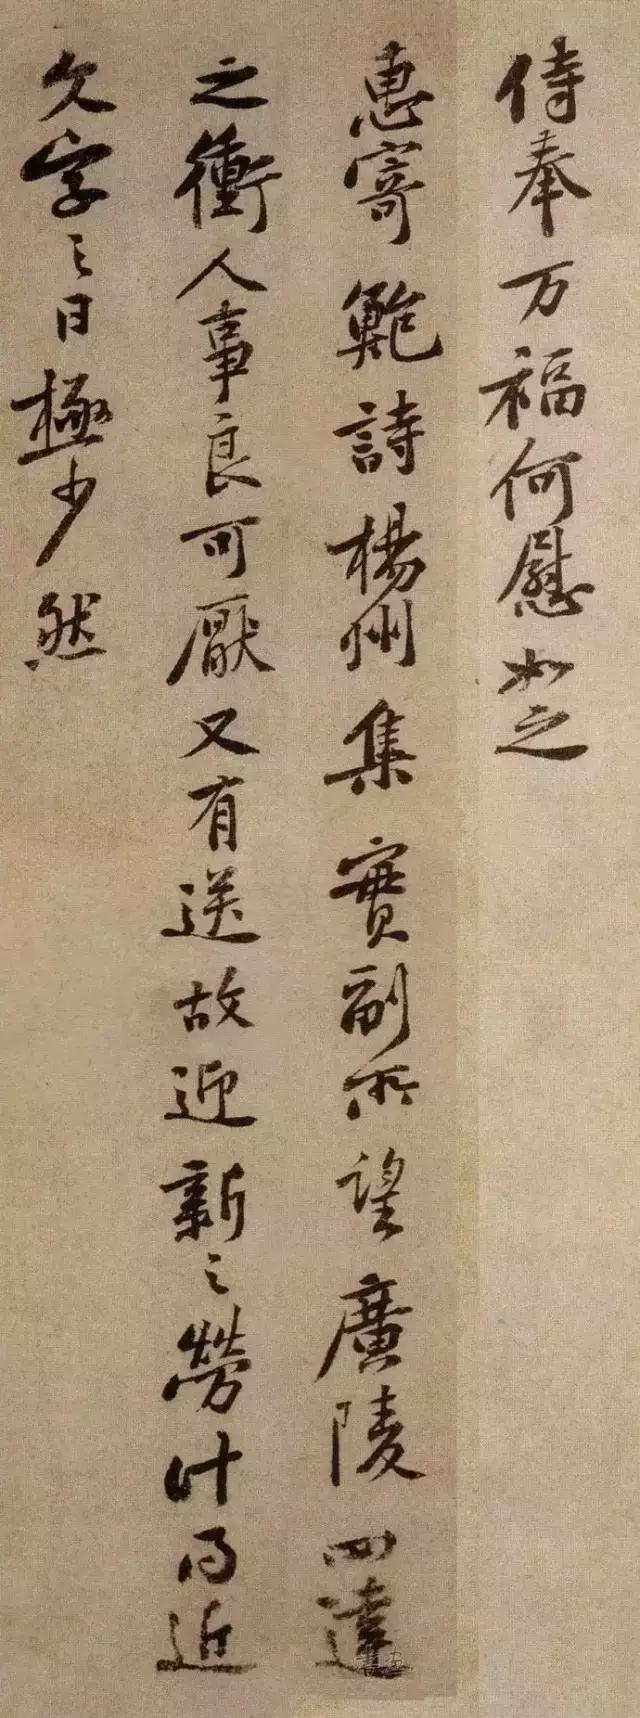 侍奉万福何慰如之
惠寄鮑詩楊州集實副所望廣陵四達
之衝人事良可厭又有送故迎新之勞计得近
文字之日極少然